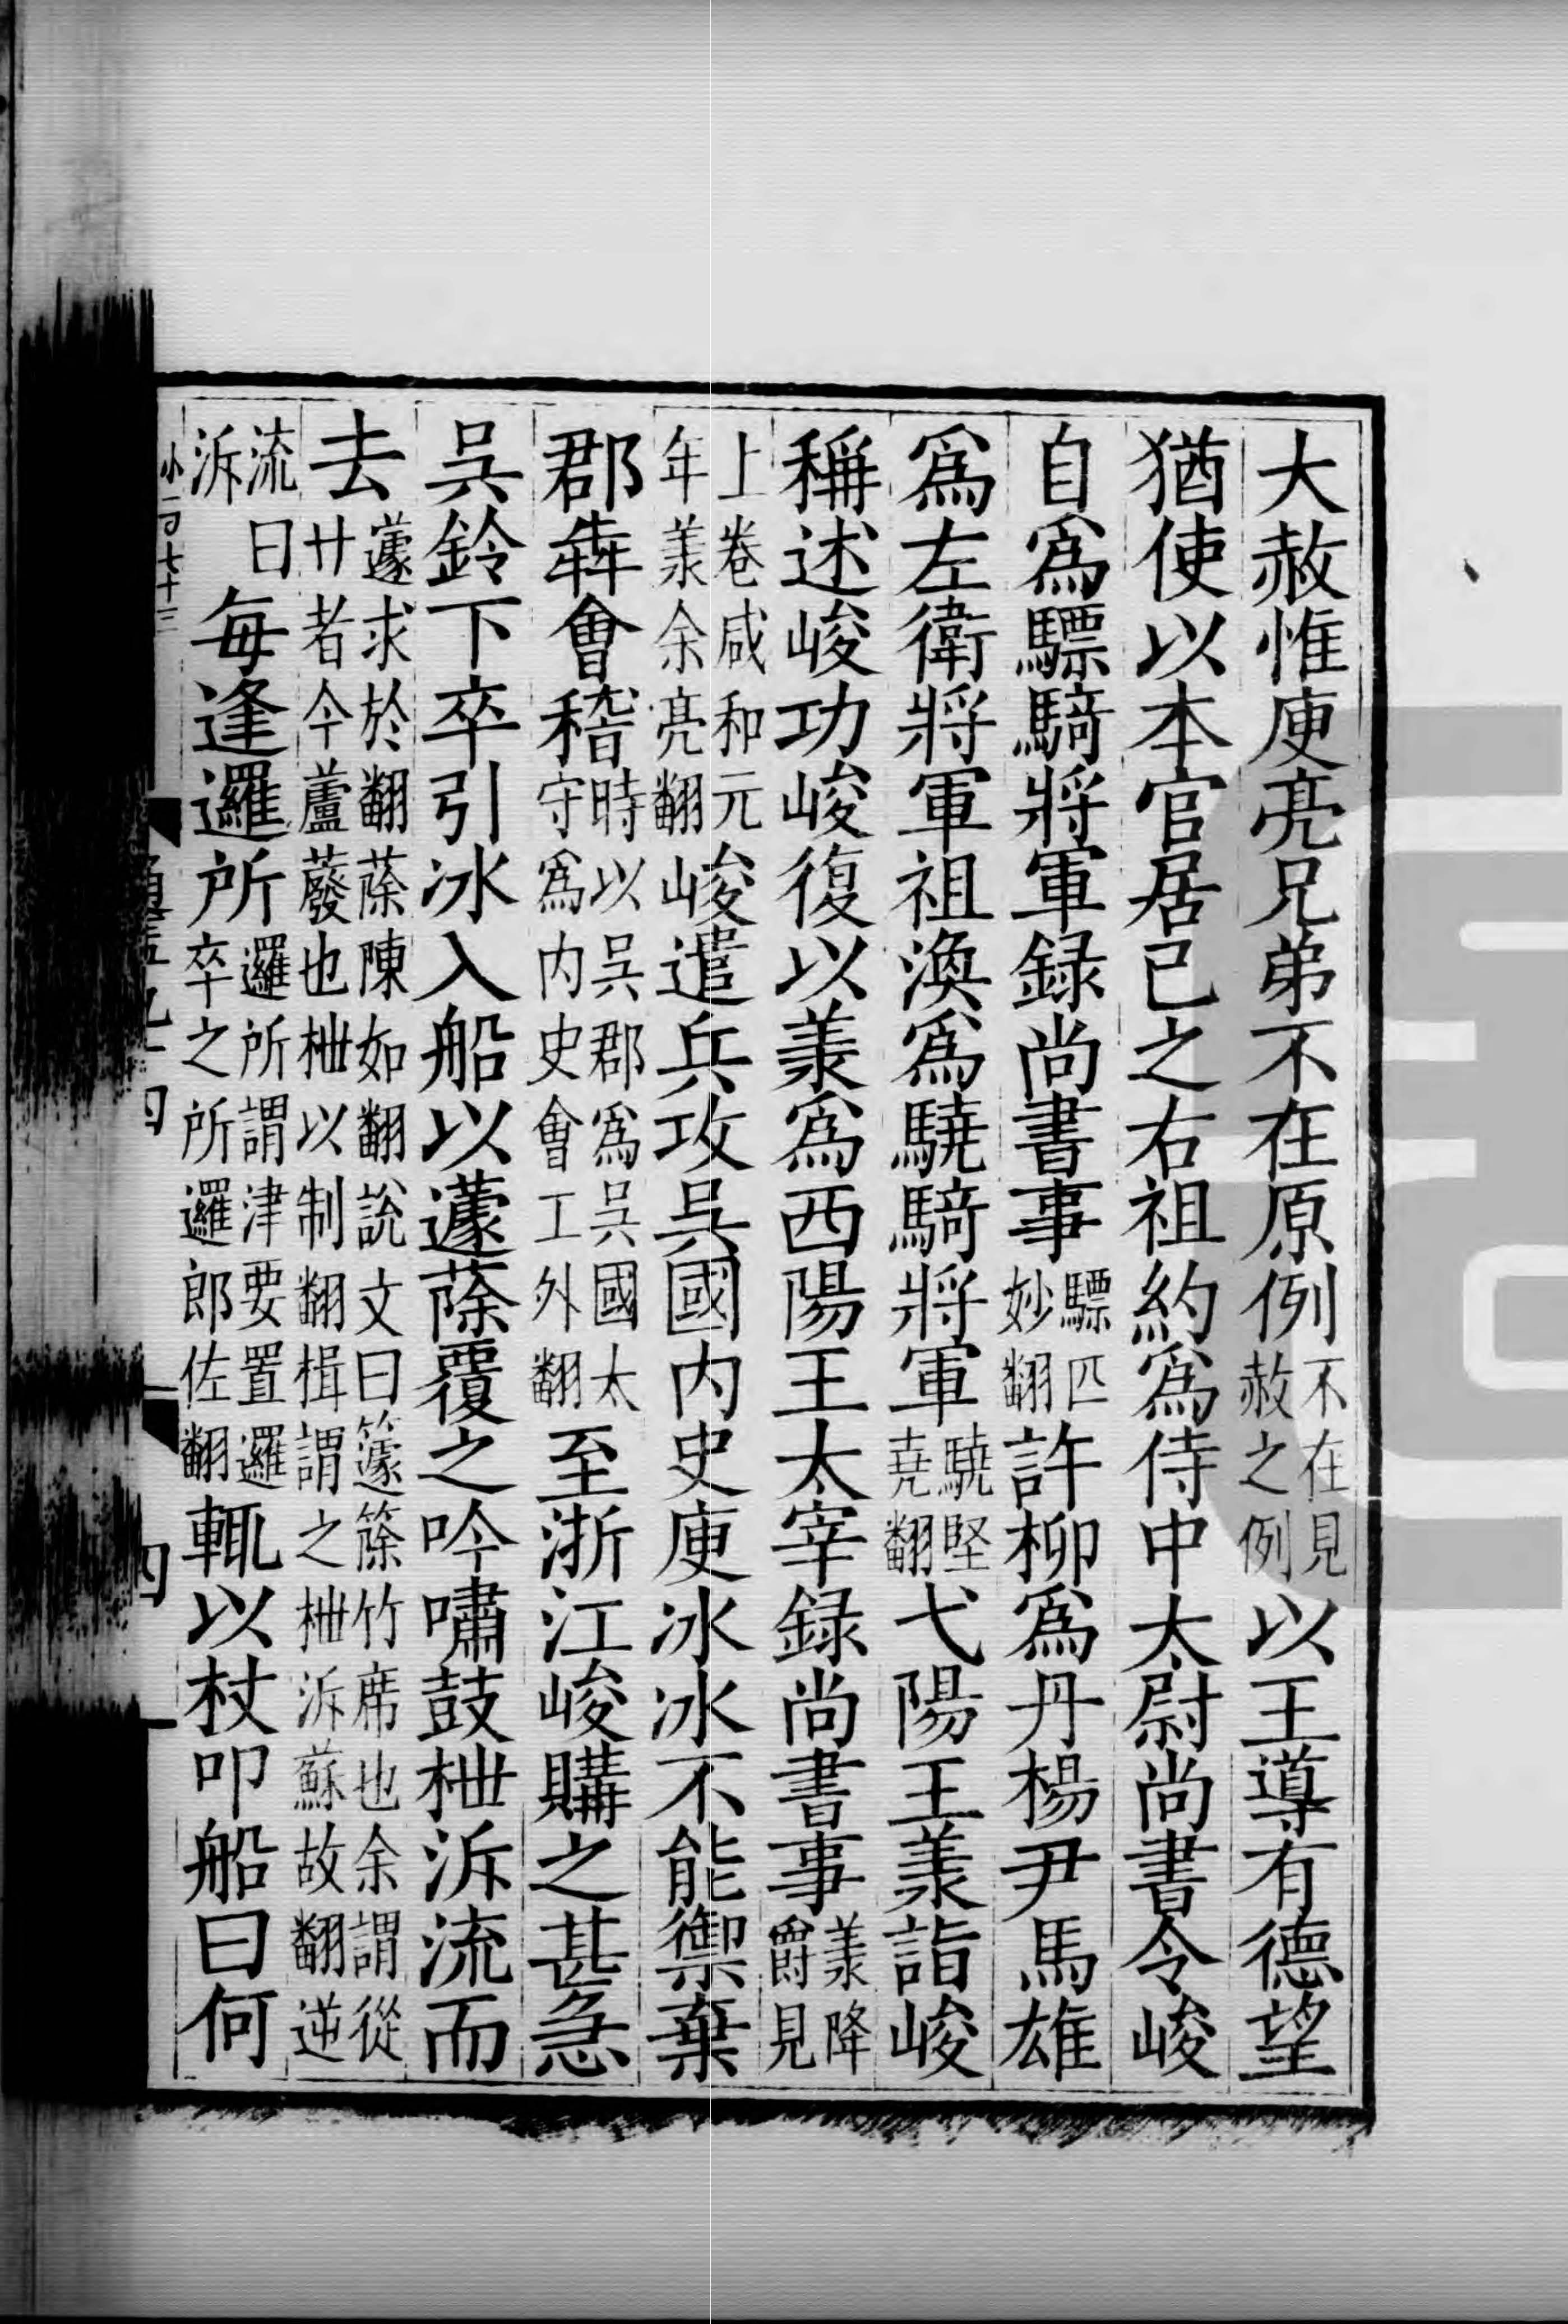 大赦惟庾亮兄弟不在原例不在見赦之例以王導有德望
猶使以本官居己之右祖約爲侍中太尉尚書令峻
自爲驃騎將軍録尚書事驃匹妙翻許柳爲丹楊尹馬雄
爲左衛將軍祖渙爲驍騎將軍驍堅堯翻弋陽王羕詣峻
稱述峻功峻復以羕爲西陽王太宰録尚書事羕降爵見
上卷咸和元年羕余亮翻峻遣兵攻吳國内史庾冰冰不能禦棄
郡犇會稽時以吳郡爲吳國太守爲内史會工外翻至浙江峻購之甚急
吳鈴下卒引冰入船以蘧蒢覆之吟嘯鼓枻泝流而
去蘧求於翻蒢陳如翻說文曰籧篨竹席也余謂從廿者今蘆蕟也枻以制翻楫謂之枻泝蘇故翻逆
流曰泝每逢邏所邏所謂津要置邏卒之所邏郎佐翻輒以杖叩船曰何